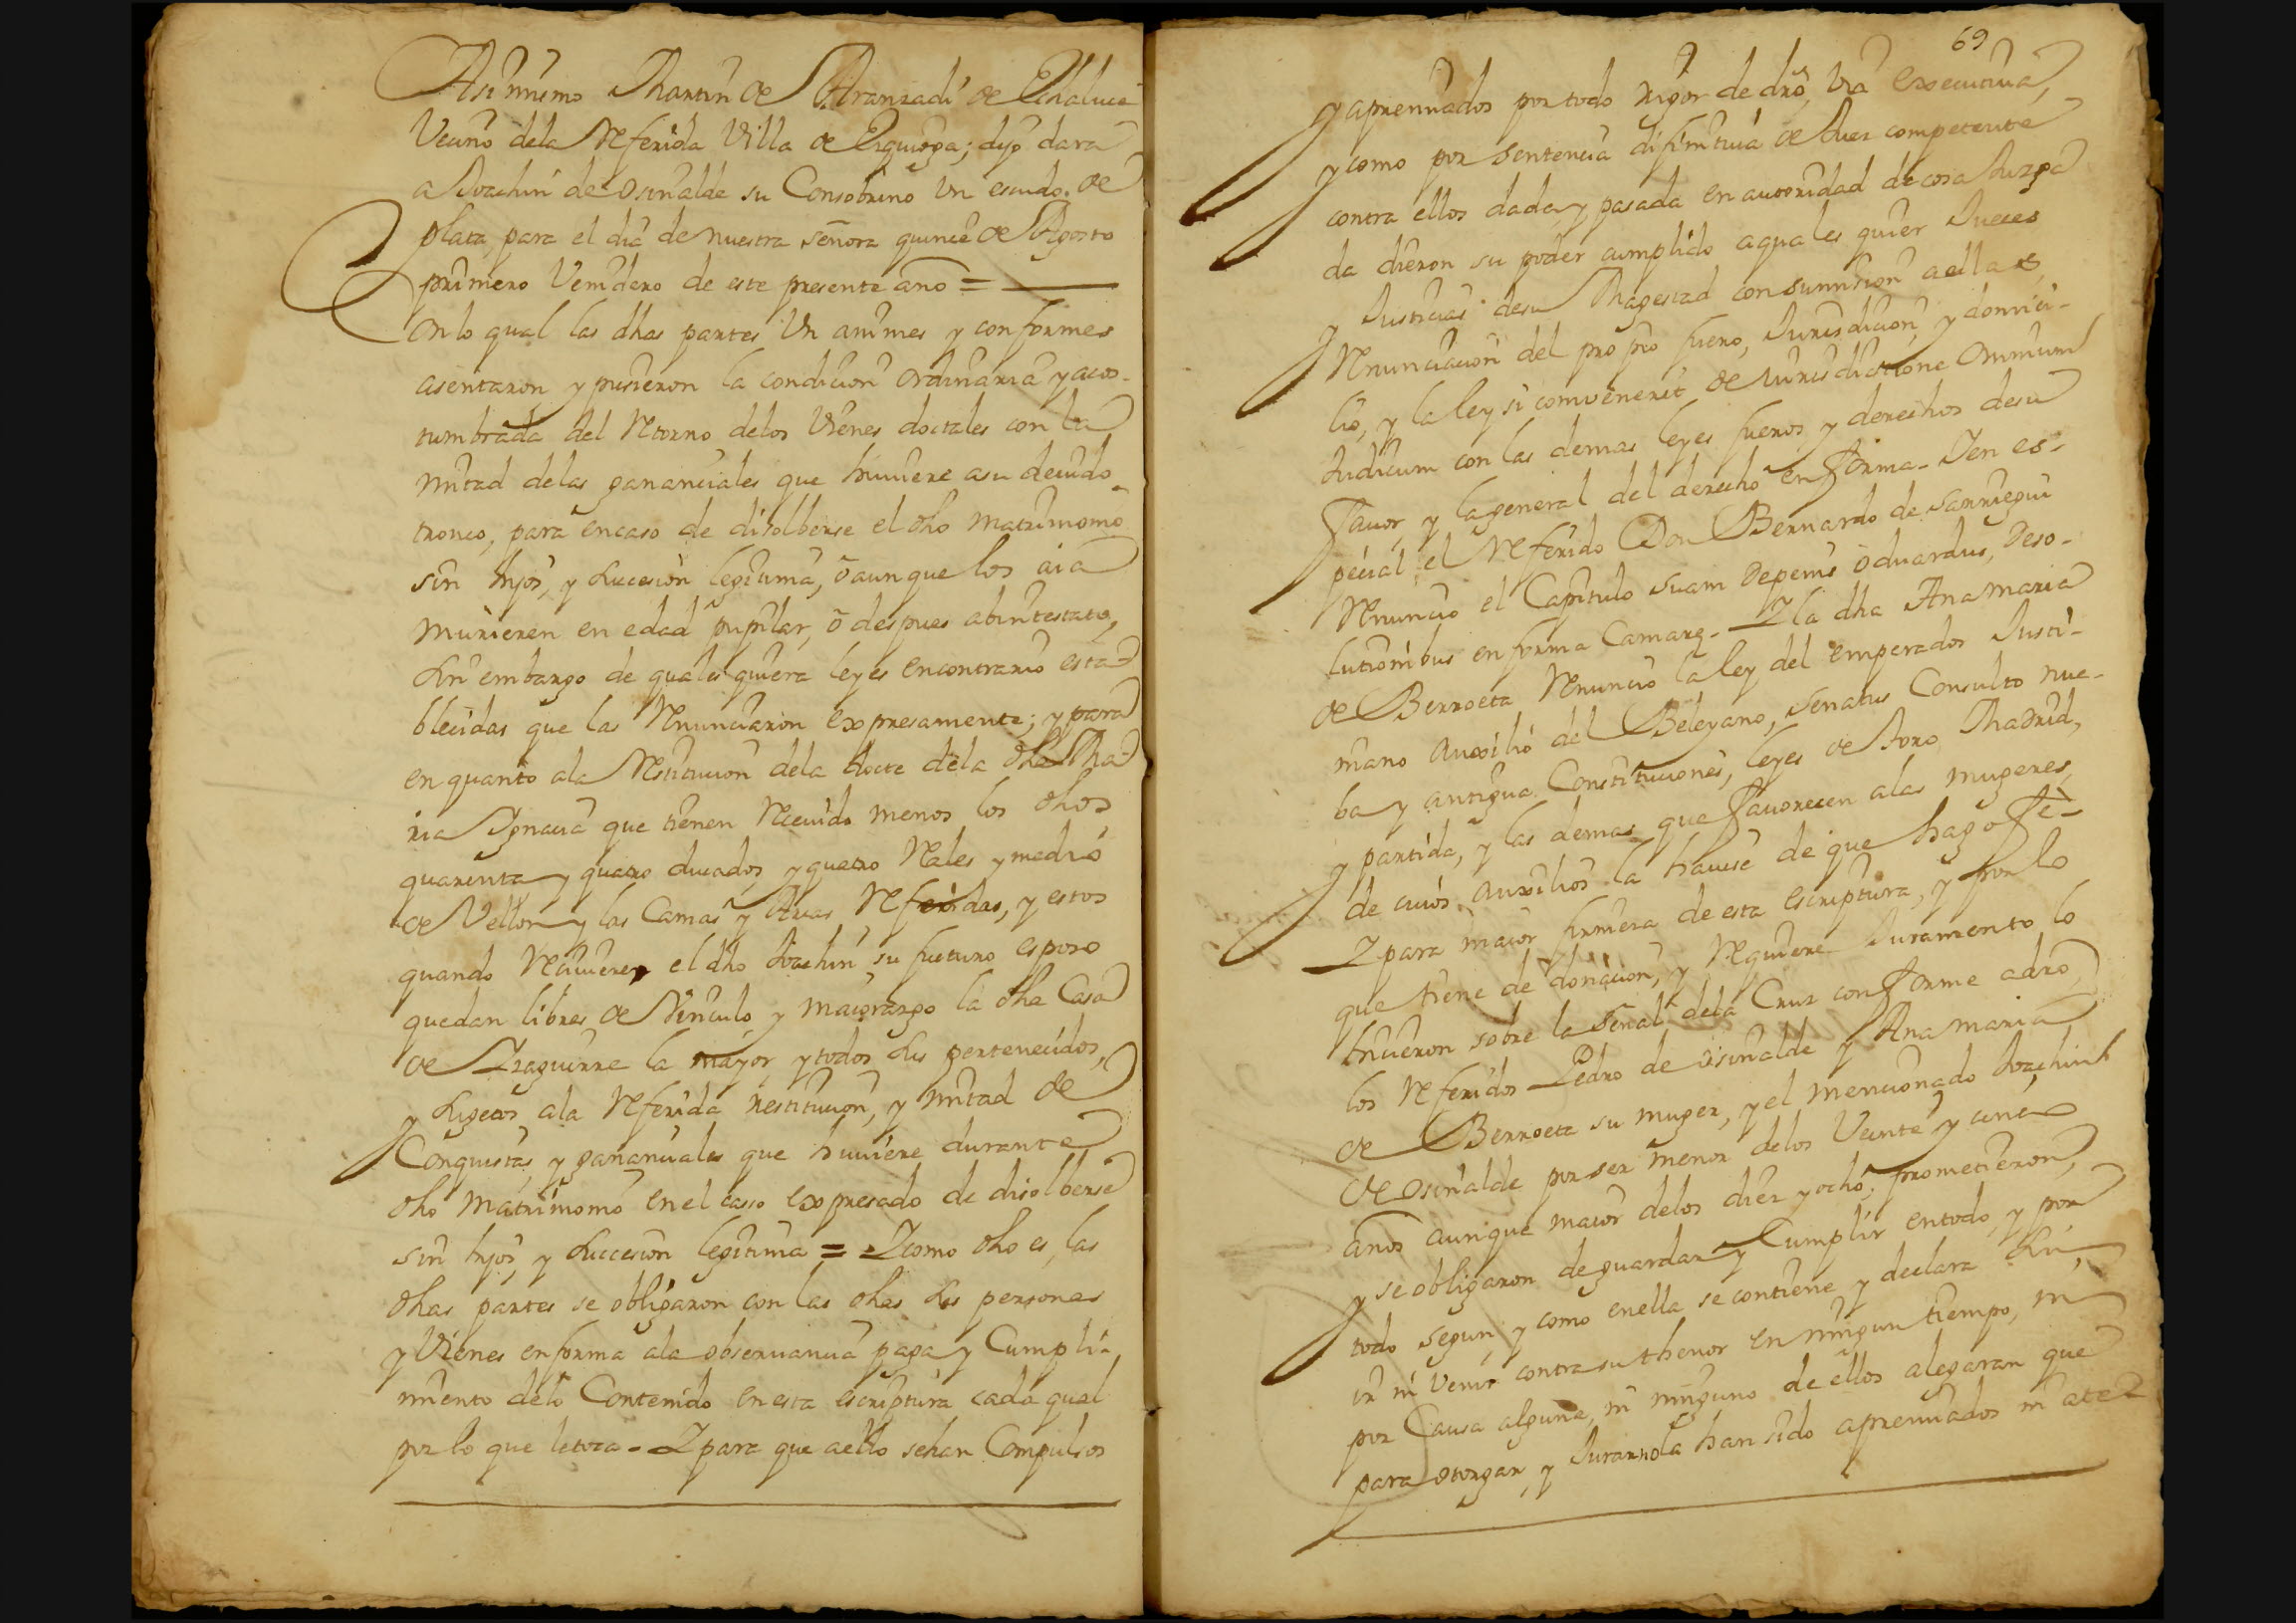 Asimismo Martin de Aranzadi de Echaluce
Vecino dela Referida Villa de Ezquioga; dijo dara
a Joachin de Osinalde su Consobrino Un escudo de
plata, para el dia de nuestra señora quince de Agosto
primero Venidero de este presente año =
Con lo qual las dhas partes Un animes y conformes
asentaron y pusieron la condicion Ordinaria y acos-
tumbrada del Retorno delos Vienes doctales con la
mitad delas gananciales que huuiere asu deuido
tronco, para encaso de disolberse el dho matrimonio
sin hijos, y Succesion legitima, ô aunque los aia
murieren en edad pupilar, ô despues abintestato,
Sin embargo de quales quiera leyes encontrario esta
blecidas que las Renunciaron expresamente; y para
en quanto ala Restitucion dela docte dela dha Ma
ria Ignacia que tienen Receuido menos los dhos
quarenta y quatro ducados, y quatro Reales y medio
de Vellon y las Camas y Arcas Referidas, y estos
quando Reciuiere el dho Joachin su futuro esposo
quedan libres de Vinculo y maiorazgo la dha Casa
de Izaguirre la mayor y todos sus pertenecidos,
y sugetos ala Referida restitucion, y mitad de
Conquistas, y gananciales que huuiere durante
dho matrimonio en el caso expresado de disolberse
sin hijos, y Succesion legitima = Y como dho es, las
dhas partes se obligaron con las dhas sus personas
y Vienes en forma ala obseruancia paga y Cumpli-
miento delo Contenido en esta escriptura cada qual
por lo que le toca - Y para que aello sehan Compulsos
69
y apremiados por todo rigor de dro, Via executiua,
y como por sentencia difinitiua de Juez competente
contra ellos dada, y pasada en autoridad de cosa Juzga
da dieron su poder cumplido a quales quier Jueces
y Justicias desu Magestad con sumision aellas,
Renunciacion del propio fuero, Jurisdicion, y domici-
lio, y la ley si convenerit de Jurisdictione Omnium
Judicum con las demas leyes fueros y derechos desu
fauor, y la general del derecho en forma - Y en es-
pecial el Referido Don Bernardo de Sarriegui
Renuncio el Capitulo Suam de penis oduardus, deso-
lutionibus en forma Camarę - Y la dha Ana Maria
de Berroeta Renuncio la ley del emperador Justi-
niano auxilio del Beleyano, senatus Consulto nue-
ba y antigua Constituciones, leyes de Toro, Madrid,
y partida, y las demas que fauorecen alas mugeres,
de cuios auxilios la hauise de que hago fe -
Y para maior firmeza de esta escriptura, y por lo
que tiene de donacion, y Requiere Juramento lo
hicieron sobre la Señal dela Cruz conforme adro
los Referidos Pedro de osinalde y Ana maria
de Berroeta su muger, y el mencionado Joachin
de osinalde por ser menor delos Veinte y cinco
años aunque maior delos diez y ocho, prometieron,
y se obligaron de guardar y Cumplir en todo, y por
todo segun, y como en ella se contiene y declara Sin
ir ni venir contra su thenor en ningun tiempo, ni
por Causa alguna, ni ninguno de ellos alegaran que
para otorgar, y Jurarla han sido apremiados ni ate